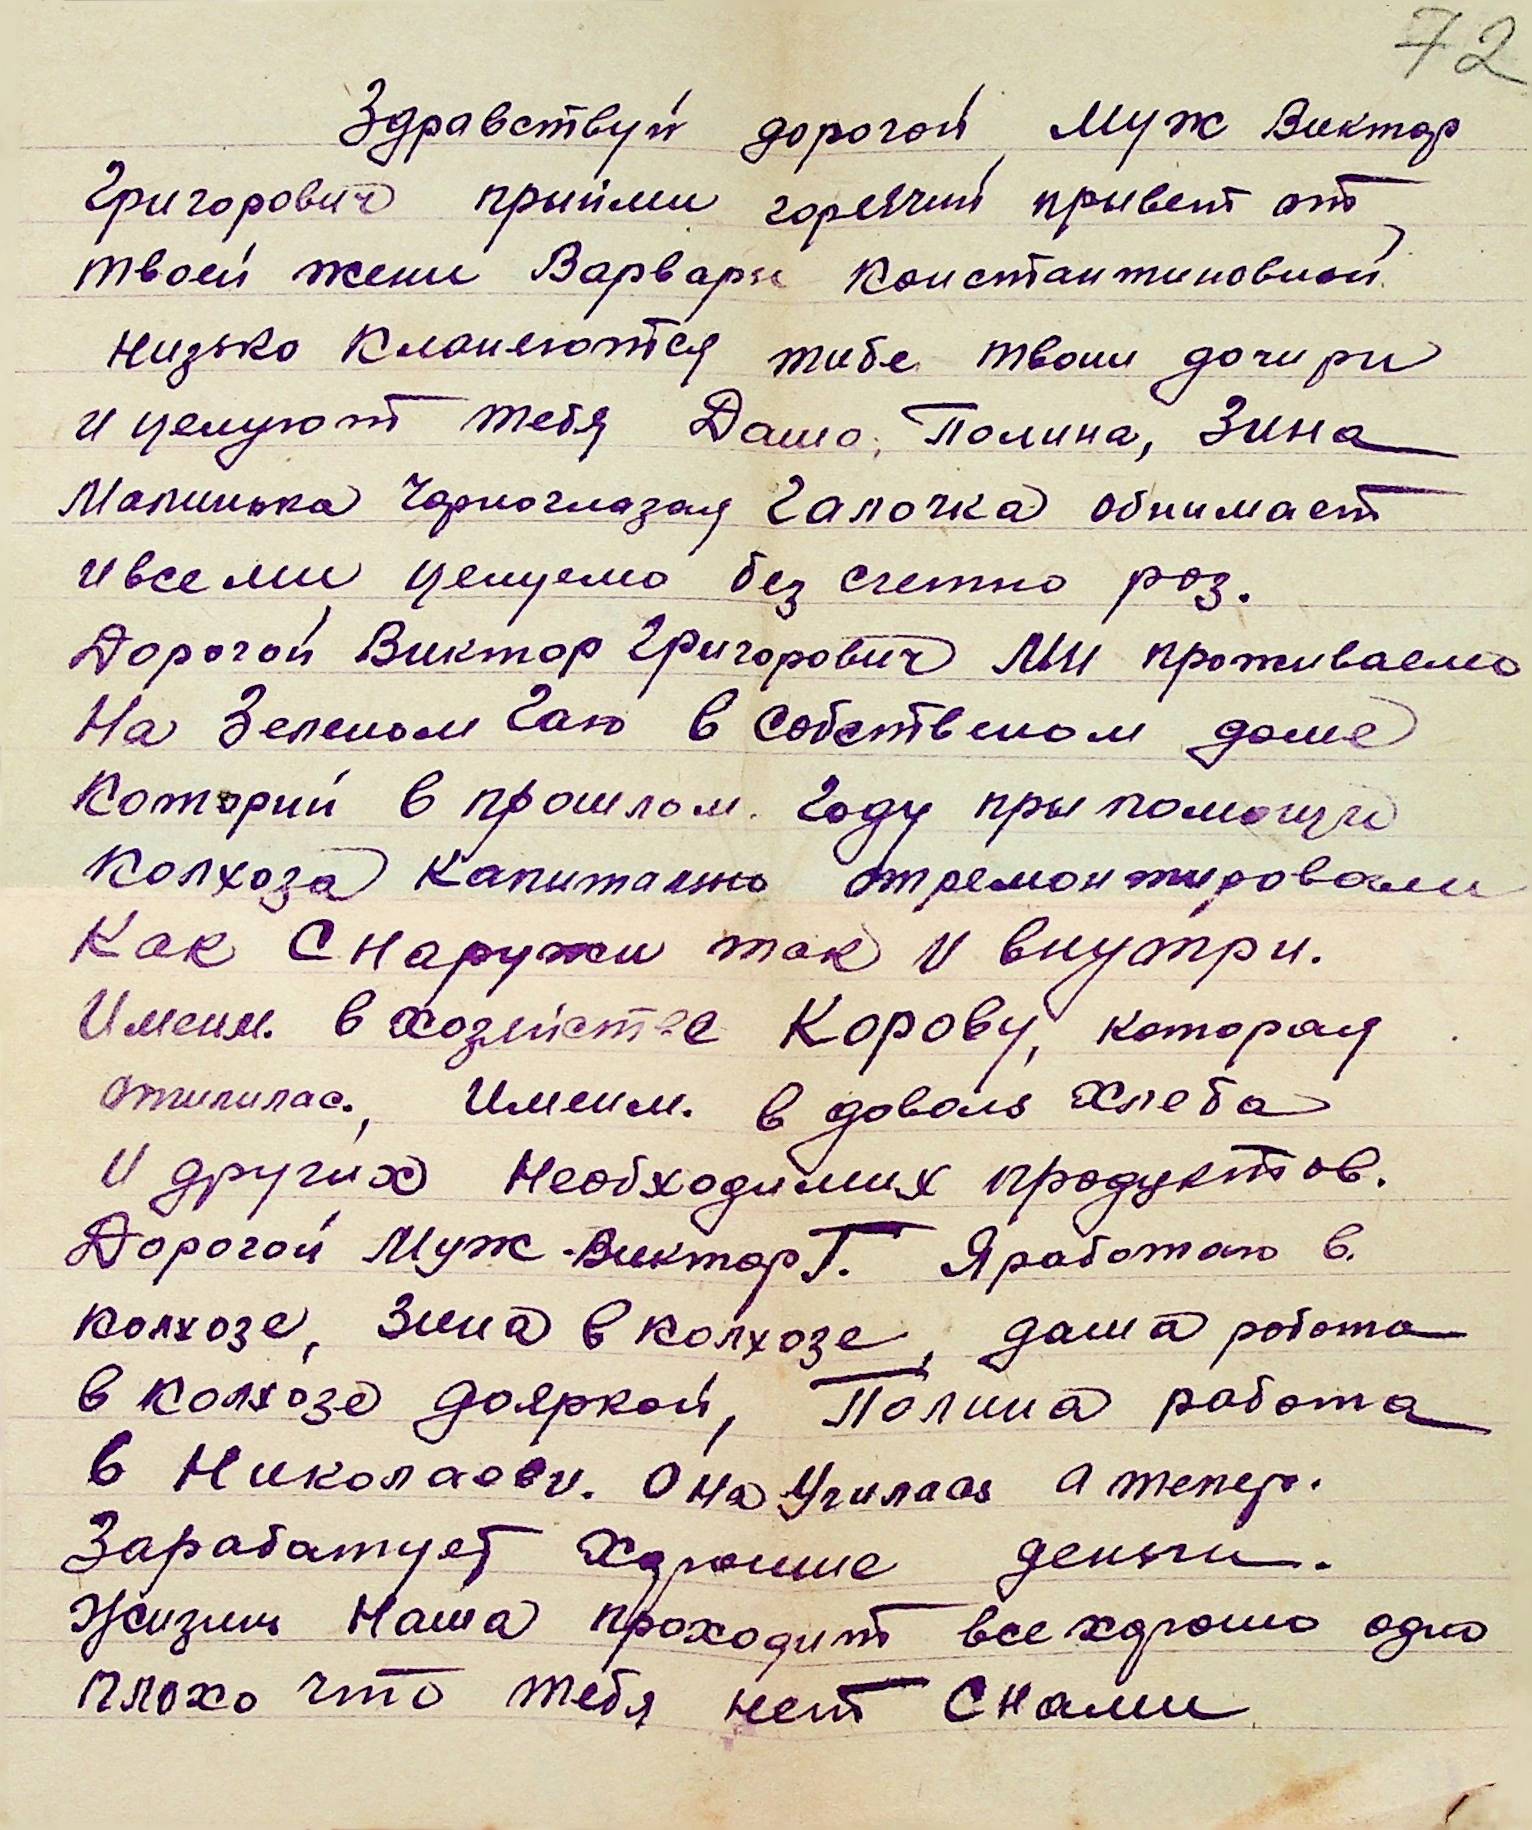 72
Здравствуй дорогой Муж Виктор
Григорович прыйми горячий прывет от
твоей жени Варвари Константиновной
низько кланяются тибе твои дочири
и целуют тебя Даша, Полина, Зина
Малинька Чорноглазая Галочка обнимает
и все ми целуемо без счетно роз.
Дорогой Виктор Григорович Ми проживаемо
На Зеленом Гаю в собственом доме
которий в прошлом году пры помощи
колхоза капитально отремонтировали
Как Снаружи так и внутри.
Имеим. в хозяйстве Корову, которая
отилилас., Имеим. в доволь хлеба
и других необходимих продуктов.
Дорогой Муж Виктор Г. Я работаю в.
колхозе, Зина в колхозе, даша робота
в колхозе дояркой, Полина работа
в Николаеви. Она Училась а тепер.
Заработует хорошие деньги.
Жизнь наша проходит все хорошо одно
плохо что тебя нет Снами